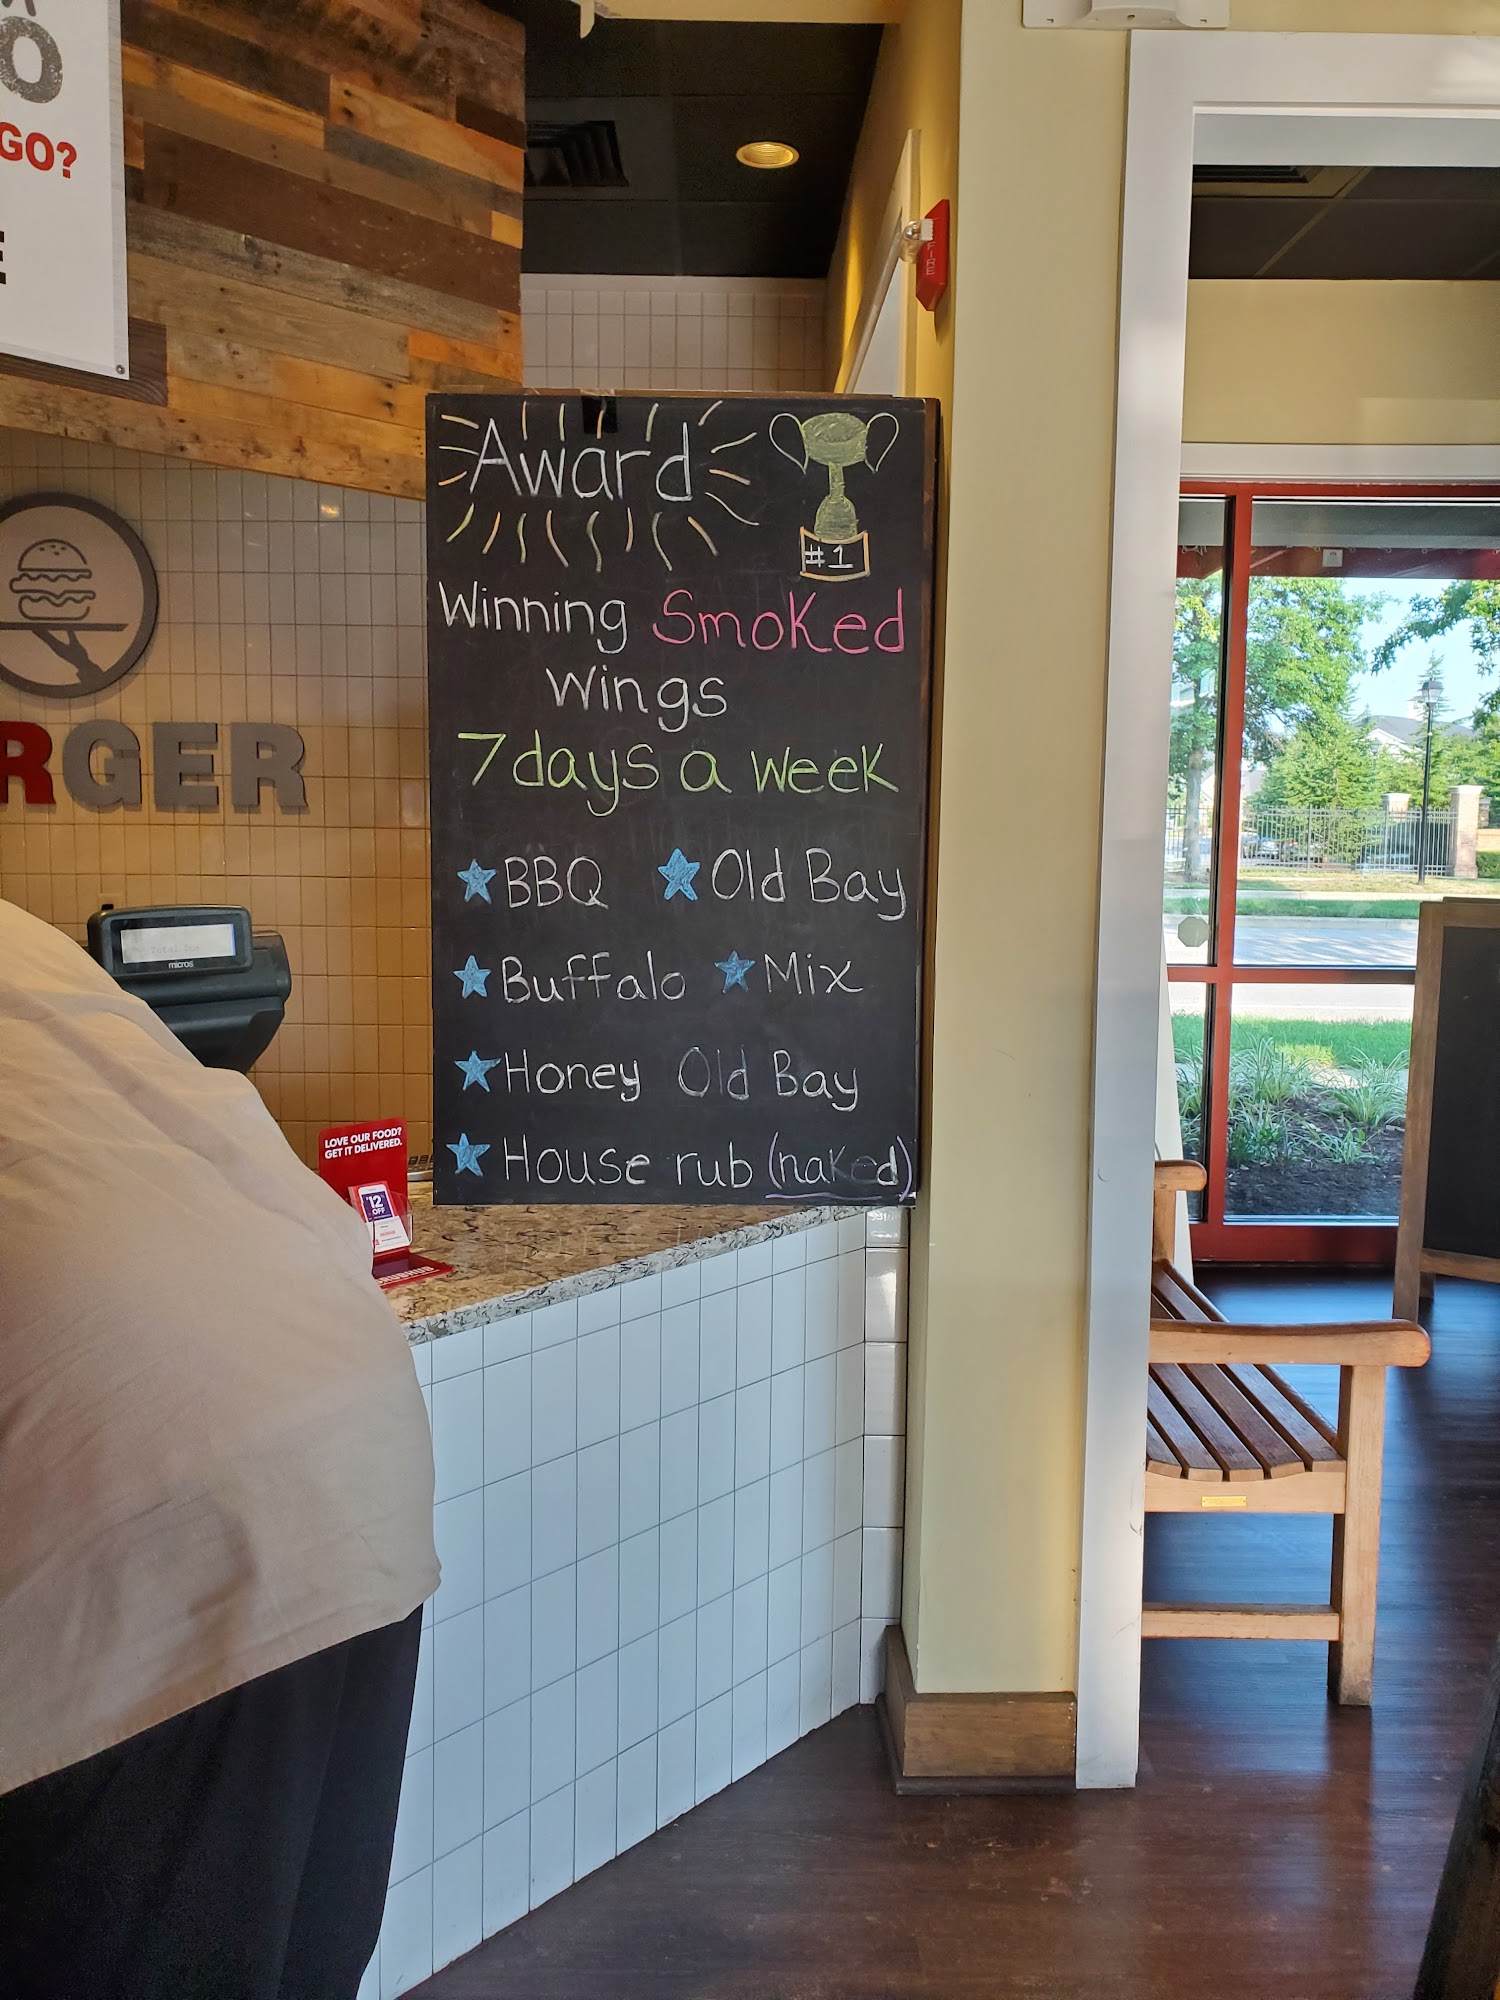 GO?
FIRE
Award
#1
Winning Smoked
Wings
7 days a week
BBQ Old Bay
Buffalo Mix
Honey Old Bay
House rub (naked)
RGER
Total Due
micros
LOVE OUR FOOD?
GET IT DELIVERED.
$12
OFF
GRUBHUB